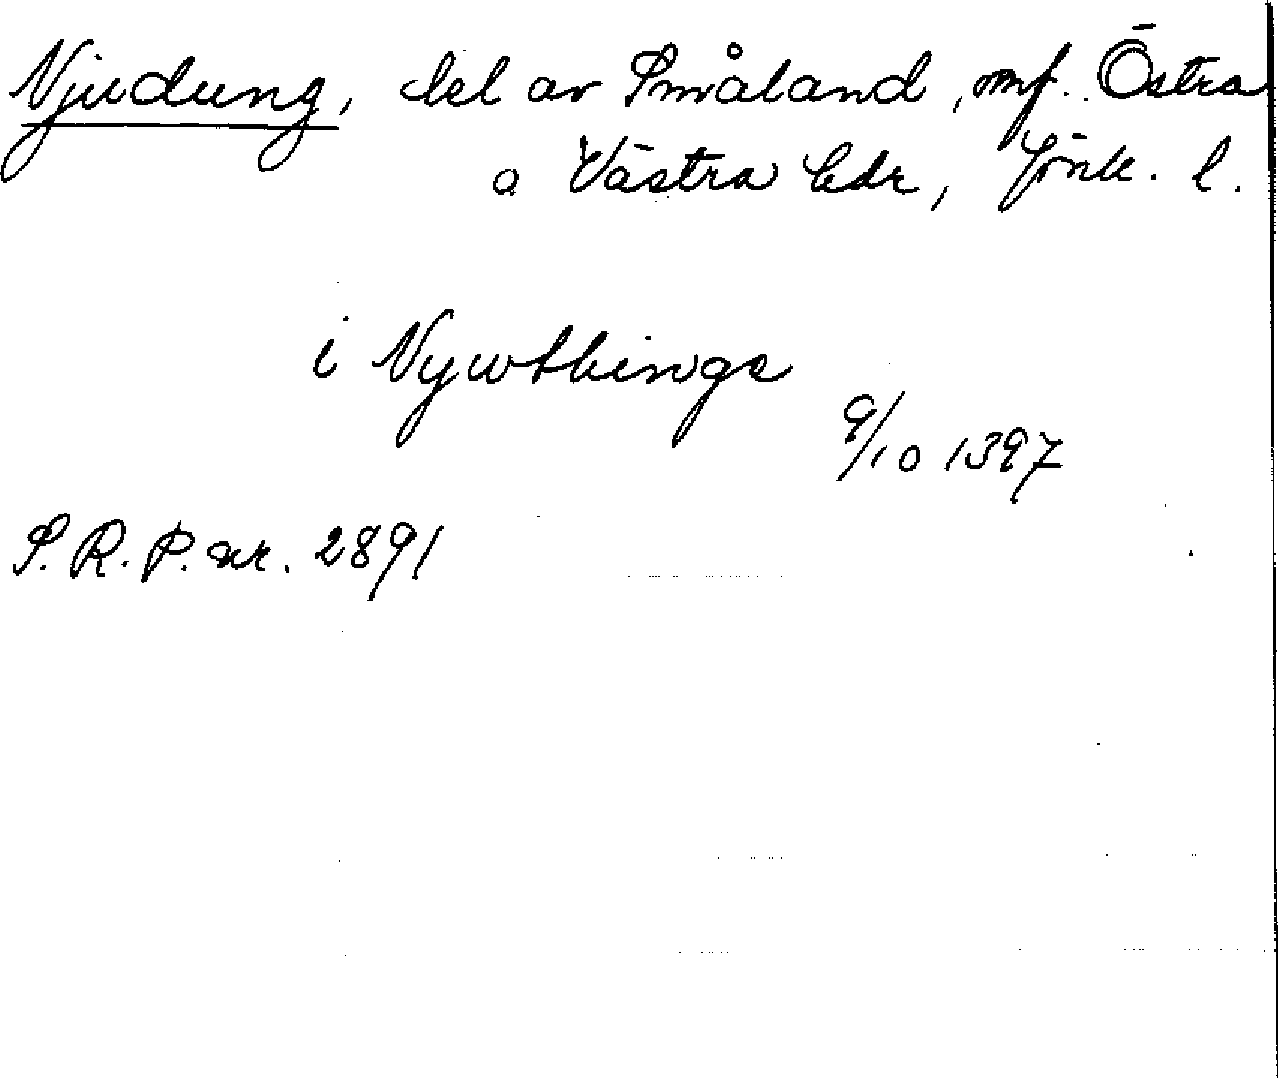 Njudung, del av Småland, omf. Östra
o Västra hdr, Jönk. l.
i Nywthinge
9/10 1397
S. R. P. nr. 2891